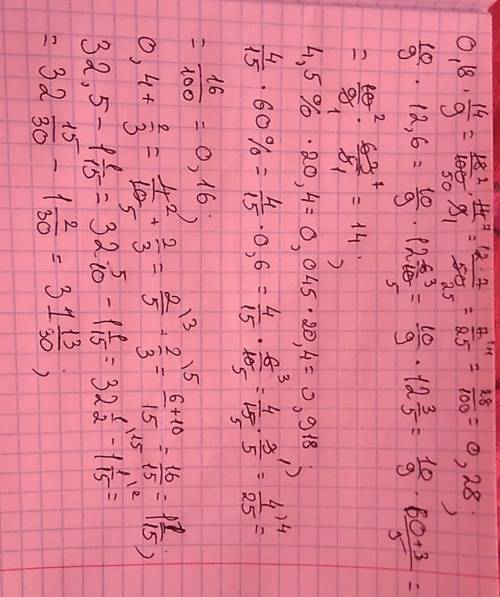 0,18 · 14/9 = 18²/100₅₀ · 14⁷/9₁ = 2·7/50₂₅ = 7\⁴/25 = 28/100 = 0,28;
10/9 · 12,6 = 10/9 · 12 6³/10₅ = 10/9 · 12 3/5 = 10/9 · 60+3/5 =
= 10²/9₁ · 63⁷/5₁ = 14;
4,5% · 20,4 = 0,045 · 20,4 = 0,918;
4/15 · 60% = 4/15 · 0,6 = 4/15 · 6³/10₅ = 4/15₅ · 3¹/5 = 4\⁴/25 =
= 16/100 = 0,16;
0,4 + 2/3 = 4²/10₅ + 2/3 = 2\³/5 + 2\⁵/3 = 6+10/15 = 16/15 = 1 1/15;
32,5 − 1 1/15 = 32 5/10 − 1 1/15 = 32 1\¹⁵/2 − 1 1\²/15 =
= 32 15/30 − 1 2/30 = 31 13/30;